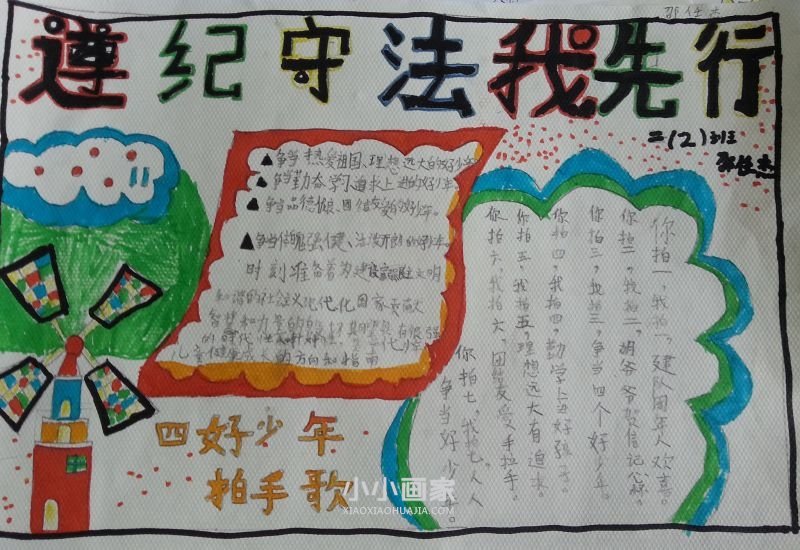 邵任杰
遵纪守法我先行
二(2)班
邵任杰
▲争当热爱祖国、理想远大的好少年
▲争当勤奋学习追求上进的好少年
▲争当品德优良、团结友爱的好少年。
▲争当体魄强健、活泼开朗的好少年。
时刻准备着为建设富强民主文明
和谐的社会主义现代化国家贡献
智慧和力量
儿童健康成长的方向和指南
你拍一,我拍一,建队周年人欢喜。
你拍二,我拍二,胡爷爷贺信记心怀。
你拍三,我拍三,争当四个好少年。
你拍四,我拍四,勤学上进好孩子。
你拍五,我拍五,理想远大有追求。
你拍六,我拍六,团结友爱手拉手。
你拍七,我拍七,人人
争当好少年。
四好少年
拍手歌
小小画家
XIAOXIAOHUAJIA.COM